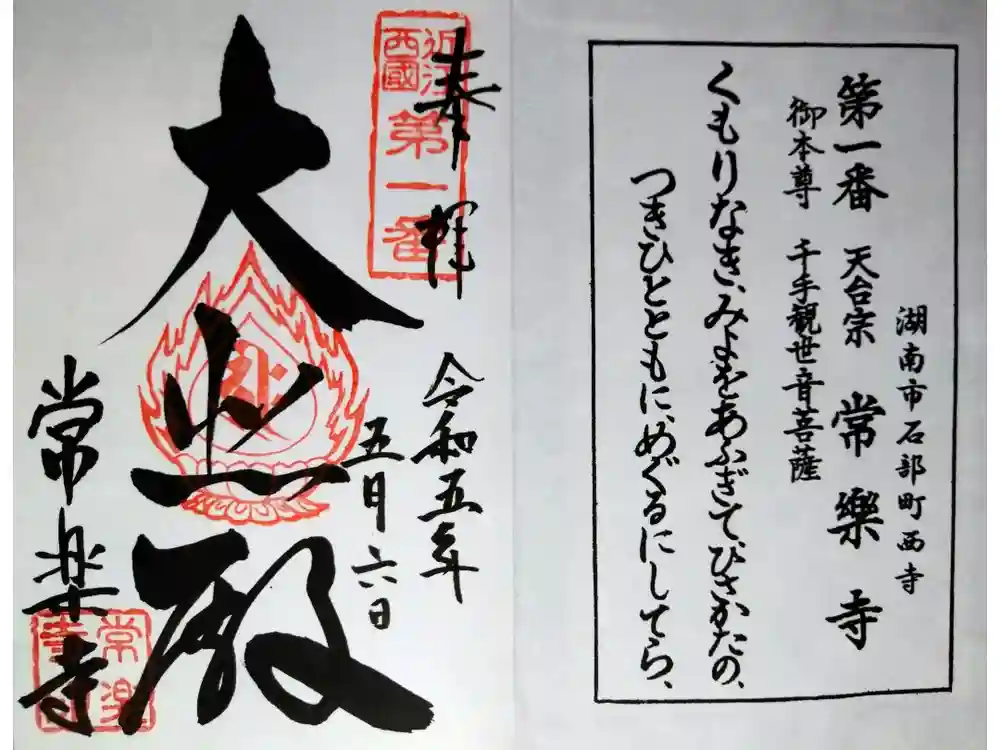 湖南市石部町西寺
第一番 天台宗 常樂寺
御本尊 千手観世音菩薩
くもりなき、みよをあふぎて、ひさかたの、
つきひとともに、めぐるにしてら、
奉拝
近江
西國
第一番
大悲殿
令和五年
五月六日
常楽寺
常楽
寺